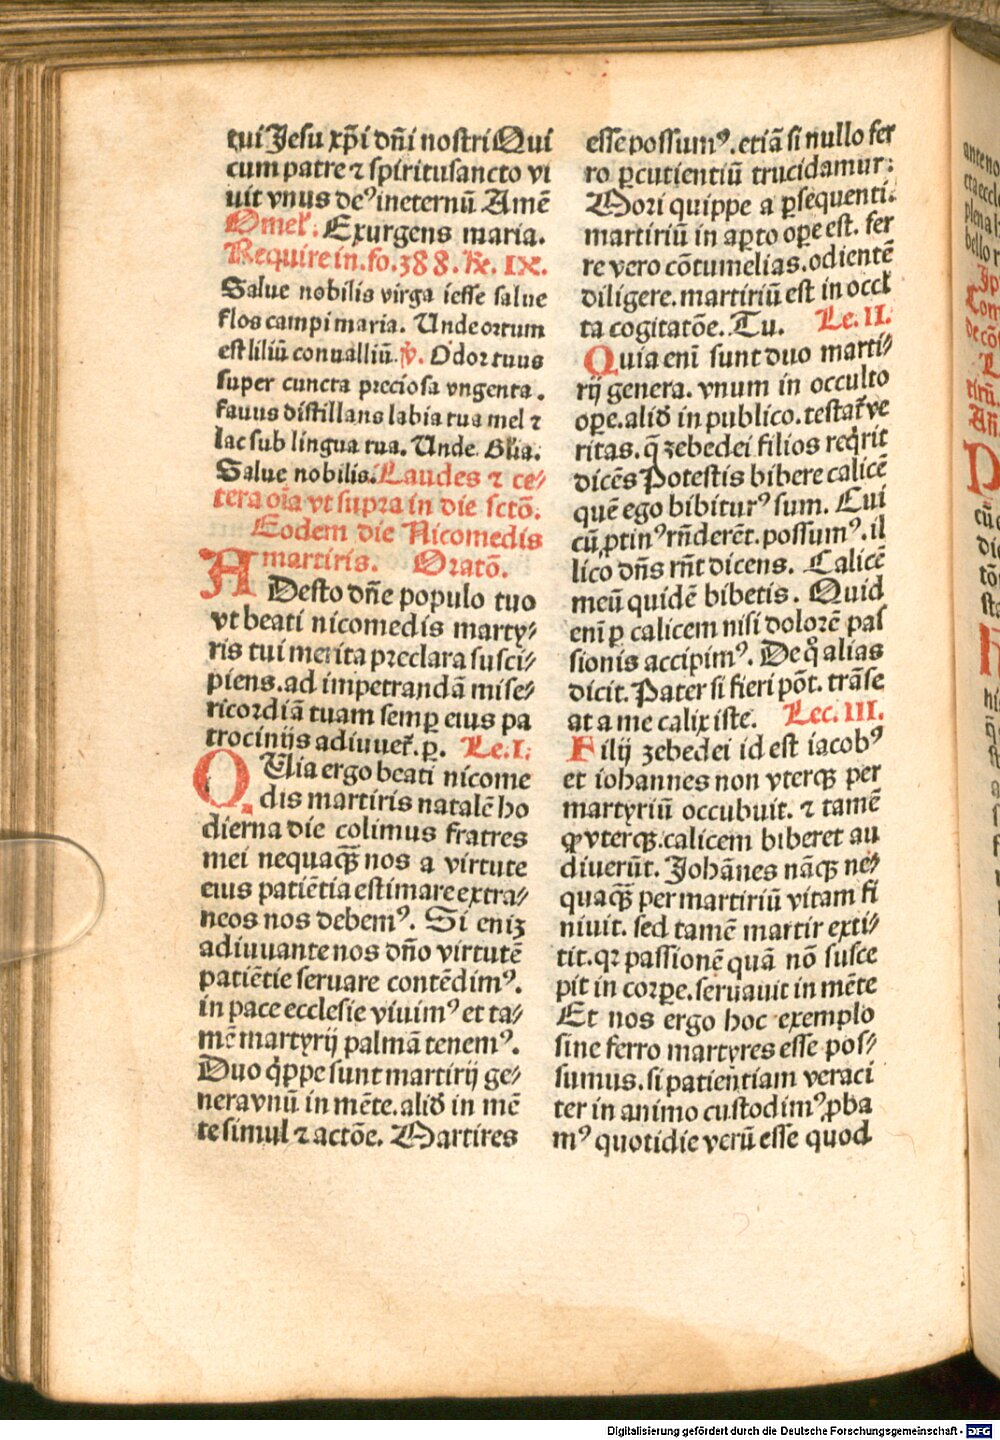 tui Jesu xp̄i dn̄i nostri Qui
cum patre ⁊ spiritusancto vi
uit vnus deꝰ ineternū Amē
Omel̕. Exurgens maria.
Require in. fo. 388. R̕. IX.
Salue nobilis virga iesse salue
flos campi maria. Unde ortum
est liliū conualliū. v̄. Odor tuus
super cuncta preciosa vngenta.
fauus distillans labia tua mel ⁊
lac sub lingua tua. Unde. Gl̄ia.
Salue nobilis. Laudes ⁊ ce⸗
tera oīa vt supra in die sctō.
Eodem die Nicomedis
martiris. Oratō.
ADesto dn̄e populo tuo
vt beati nicomedis marty⸗
ris tui merita preclara susci⸗
piens. ad impetrandā mise⸗
ricordiā tuam semꝑ eius pa
trocinijs adiuuet̕. ꝑ. Le. I.
QUia ergo beati nicome
dis martiris natalē ho
dierna die colimus fratres
mei nequaqꝫ nos a virtute
eius patiētia estimare extra⸗
neos nos debemꝰ. Si enīꝫ
adiuuante nos dn̄o virtutē
patiētie seruare contēdimꝰ.
in pace ecclesie viuimꝰ et ta⸗
mē martyrij palmā tenemꝰ.
Duo q̇ꝑpe sunt martirij ge⸗
nera vnū in mēte. aliđ in mē
te simul ⁊ actōe. Martires
esse possumꝰ. etiā si nullo fer
ro ꝑcutientiū trucidamur:
Mori quippe a ꝑsequenti.
martiriū in aꝑto oꝑe est. fer
re vero cōtumelias. odientē
diligere. martiriū est in occl̕
ta cogitatōe. Tu. Le. II.
Quia enī sunt duo marti⸗
rij genera. vnum in occulto
oꝑe. aliđ in publico. testat̕ ve
ritas. q̄ zebedei filios req̇rit
dicēs Potestis bibere calicē
quē ego bibiturꝰ sum. Cui
cū ꝓtinꝰ rn̄derēt. possumꝰ. il
lico dn̄s rn̄t dicens. Calicē
meū quidē bibetis. Quid
enī ꝑ calicem nisi dolorē pas
sionis accipimꝰ. De q̊ alias
dicit. Pater si fieri pōt. trāse
at a me calix iste. Lec. III.
Filij zebedei id est iacobꝰ
et iohannes non vterqꝫ per
martyriū occubuit. ⁊ tamē
ꝙ vterqꝫ. calicem biberet au
diuerūt. Johānes nāqꝫ ne⸗
quaqꝫ per martiriū vitam fi
niuit. sed tamē martir exti⸗
tit. qꝛ passionē quā nō susce
pit in corꝑe. seruauit in mēte
Et nos ergo hoc exemplo
sine ferro martyres esse pos⸗
sumus. si patientiam veraci
ter in animo custodimꝰ. ꝓba
mꝰ quotidie verū esse quod
Digitalisierung gefördert durch die Deutsche Forschungsgemeinschaft - DFG